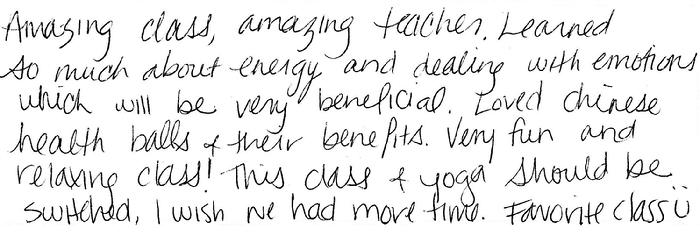 Amazing class, amazing teacher. Learned
so much about energy and dealing with emotions
which will be very beneficial. Loved chinese
health balls & their benefits. Very fun and
relaxing class! This class & yoga should be
switched, I wish we had more time. Favorite class ü